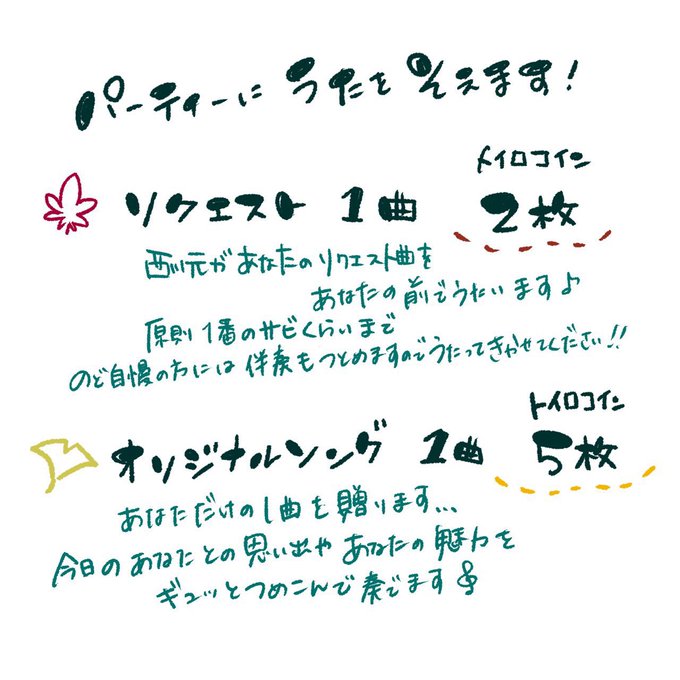 パーティーに うたを そえます!
メイロコイン
リクエスト 1曲 2枚
西川元があなたのリクエスト曲を
あなたの前でうたいます♪
原則1番のサビくらいまで
のど自慢の方には伴奏もつとめますのでうたってきかせてください!!
トイロコイン
オリジナルソング 1曲 5枚
あなただけの1曲を贈ります...
今日のあなたとの思い出やあなたの魅力を
ギュッとつめこんで奏でます